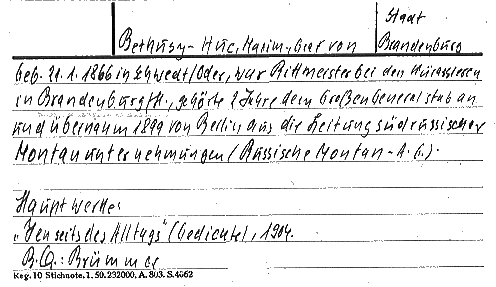 Staat
Bethusy-Huc, Maxim, Graf von Brandenburg
geb. 21.1.1866 in Schwedt/Oder, war Rittmeister bei den Kürassieren
in Brandenburg/H., gehörte 2 Jahre dem Großen Generalstab an
und übernahm 1899 von Berlin aus die Leitung südrussischer
Montanunternehmungen (Russische Montan-A.G.).
Hauptwerke:
"Jenseits des Alltags" (Gedichte), 1904.
B.Q.: Brümmer
Keg. 10 Stichnote. 1. 50. 232000. A. 803. S. 4662